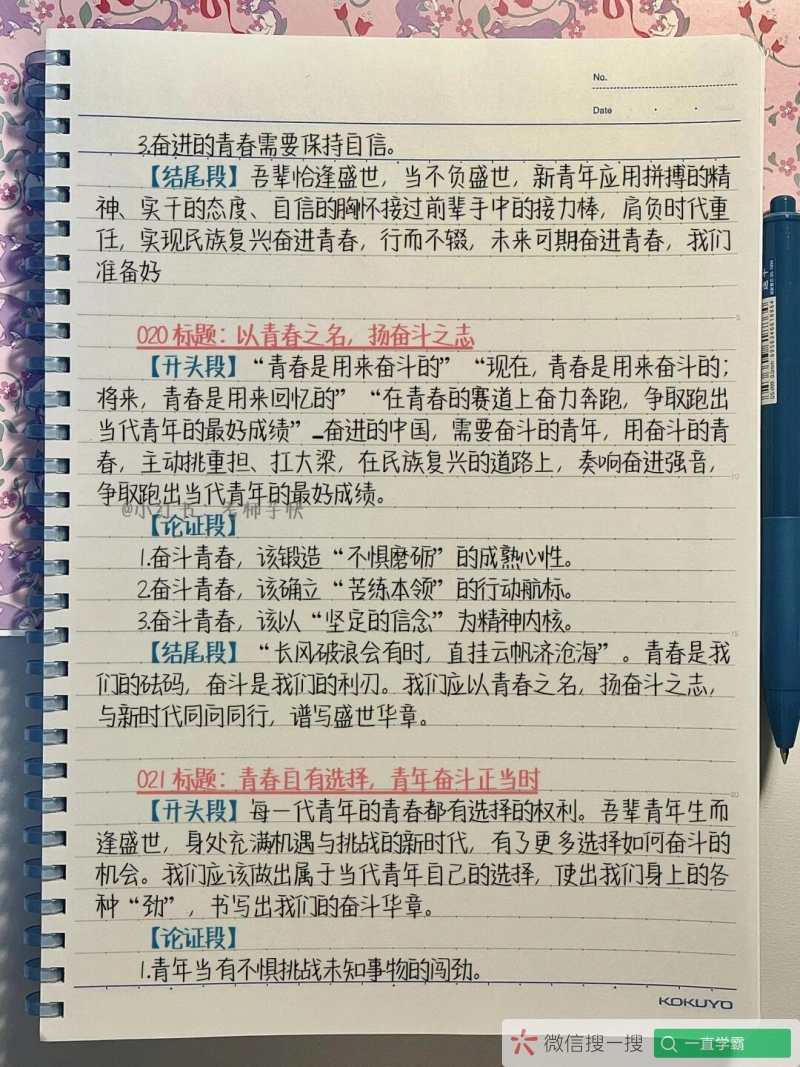 No.
Date
3.奋进的青春需要保持自信。
【结尾段】吾辈恰逢盛世，当不负盛世，新青年应用拼搏的精
神、实干的态度、自信的胸怀接过前辈手中的接力棒，肩负时代重
任，实现民族复兴!奋进青春，行而不辍，未来可期!奋进青春，我们
准备好
5
020 标题：以青春之名，扬奋斗之志
【开头段】“青春是用来奋斗的”“现在，青春是用来奋斗的；
将来，青春是用来回忆的”“在青春的赛道上奋力奔跑，争取跑出
当代青年的最好成绩”—奋进的中国，需要奋斗的青年，用奋斗的青
春，主动挑重担、扛大梁，在民族复兴的道路上，奏响奋进强音，
10
争取跑出当代青年的最好成绩。
@小红书：
【论证段】
1.奋斗青春，该锻造“不惧磨砺”的成熟心性。
2.奋斗青春，该确立“苦练本领”的行动航标。
3.奋斗青春，该以“坚定的信念”为精神内核。
15
【结尾段】“长风破浪会有时，直挂云帆济沧海”。青春是我
们的砝码，奋斗是我们的利刃。我们应以青春之名，扬奋斗之志，
与新时代同向同行，谱写盛世华章。
021 标题：青春自有选择，青年奋斗正当时
20
【开头段】每一代青年的青春都有选择的权利。吾辈青年生而
逢盛世，身处充满机遇与挑战的新时代，有了更多选择如何奋斗的
机会。我们应该做出属于当代青年自己的选择，使出我们身上的各
种“劲”，书写出我们的奋斗华章。
【论证段】
1.青年当有不惧挑战未知事物的闯劲。
KOKUYO
微信搜一搜
一直学霸